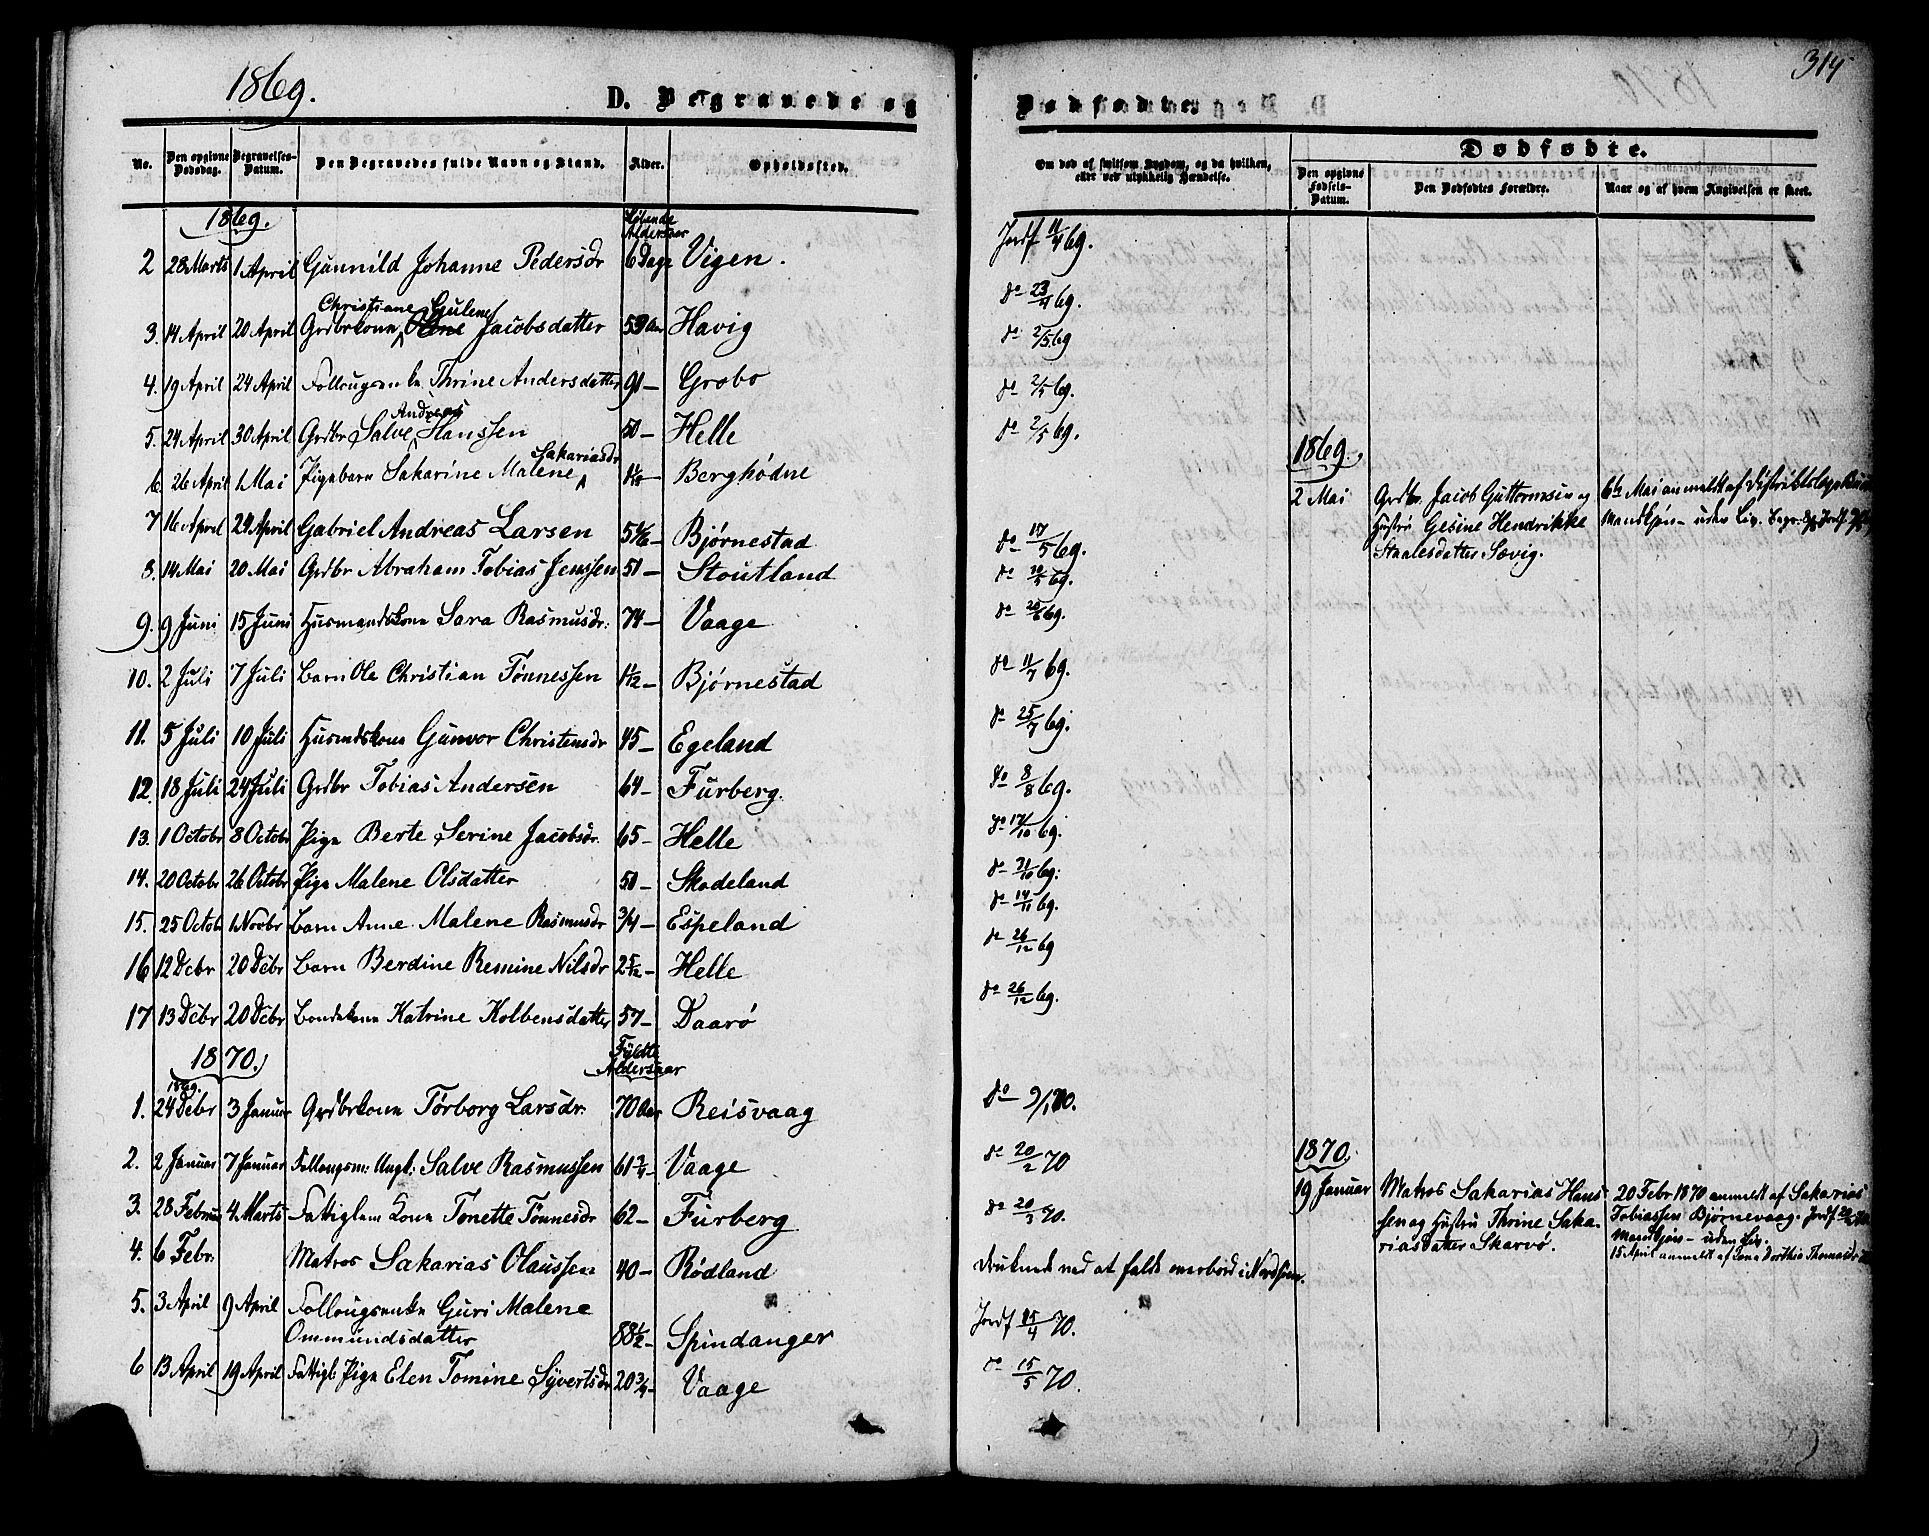 1869.
D. Begravede og
No.
Den opgivne Dødsdag.
Begravelses-Datum.
Den Begravedes fulde Navn og Stand.
Alder.
Opholdssted.
1869.
Løbende Aldersaar
2 28 Marts 1 April Gunnild Johanne Pedersdr 6 Dage Vigen.
Christiane Gulene
3. 14 April 20 April Grdbrkone Jacobsdatter 59 Aar Havig
4. 19 April 24 April Thrine Andersdatter 91 — Grobo
Andreas
5. 24 April 30 April Grdbr Salve Hanssen 50 — Helle
Sakariasdr
6. 26 April 1 Mai Pigebarn Sakarine Malene Berghødne
7 16 April 29 April Gabriel Andreas Larsen Bjørnestad
8. 14 Mai 20 Mai Grdbr Abraham Tobias Jenssen 51 — Stoutland
9. 9 Juni 15 Juni Husmandskone Sara Rasmusdr: 74 — Vaage
10. 2 Juli 7 Juli Barn Ole Christian Tønnessen 1 1/12 — Bjørnestad
11. 5 Juli 10 Juli Husmdskone Gunvor Christensdr 45 — Egeland
12. 18 Juli 24 Juli Grdbr Tobias Andersen 64 — Furberg.
13. 1 Octobr 8 Octobr Pige Berte Serine Jacobsdr. 65 — Helle
14. 20 Octobr 26 Octobr Pige Malene Olsdatter 51 — Skodeland
15. 25 Octob 1 Novbr Barn Anne Malene Rasmusdr 3/4 — Espeland
16 12 Dcbr 20 Dcbr Barn Berdine Remine Nilsdr 2 5/12 — Helle
17 13 Decbr 20 Decbr Bondekone Katrine Kolbensdatter 57 — Daarø
1870.
Fyldte Aldersaar
1869.
1. 24 Decbr 3 Januar Grdbrkone Törborg Larsdr. 70 Aar Reisvaag
2. 2 Januar 7 Januar Follougsm: Ungk: Salve Rasmussen 61 3/4 — Vaage
3. 28 Februar 4 Marts Fattiglem Kone Tonette Tønnesdr 62 — Furberg
4. 6 Febr. Matros Sakarias Olaussen 40 — Rødland
5. 3 April 9 April Follougsenke Guri Malene
Ommundsdatter 88 1/2 — Spindanger
6 13 April 19 April Fattigl: Pige Elen Tomine Syvertsdr 20 3/4 — Vaage
314
Dødfødte.
Om død af smitsom Sygdom, og da hvilken,
eller ved ulykkelig Hændelse.
Dødfødte.
Den opgivne Fødsels-Datum.
Den Dødfødtes Forældre.
Naar og af hvem Angivelsen er skeet.
Jordf 11/4 69.
do 23/4 69.
do 2/5 69
do 2/5 69.
do 2/5 69.
1869.
2 Mai Grdbr. Jacob Guttormsen og
Hustru Gesine Hendrikke
Staalesdatter Sævig.
6te Mai anmeldt af Distriktslæge
Mandkjøn — uden Liv.
do 17/5 69.
do 69.
do 69.
do 11/7 69.
do 25/7 69.
do 8/8 69.
do 17/10 69.
do 31/10 69.
do 14/11 69.
do 26/12 69
do 26/12 69.
do 9/1 70.
do 20/2 70
do 20/3 70.
1870.
19 Januar Matros Sakarias Hans-
sen og Hustru Thrine Saka-
riasdatter Skarvø.
20 Febr 1870 anmeldt af Sakarias
Tobiassen Bjørnevaag. Jordf
Mandkjøn — uden Liv.
15 April anmeldt af Dorthea Thomasdr
Druknede ved at falde overbord i Nordsøen.
Jordf 70.
do 15/5 70.